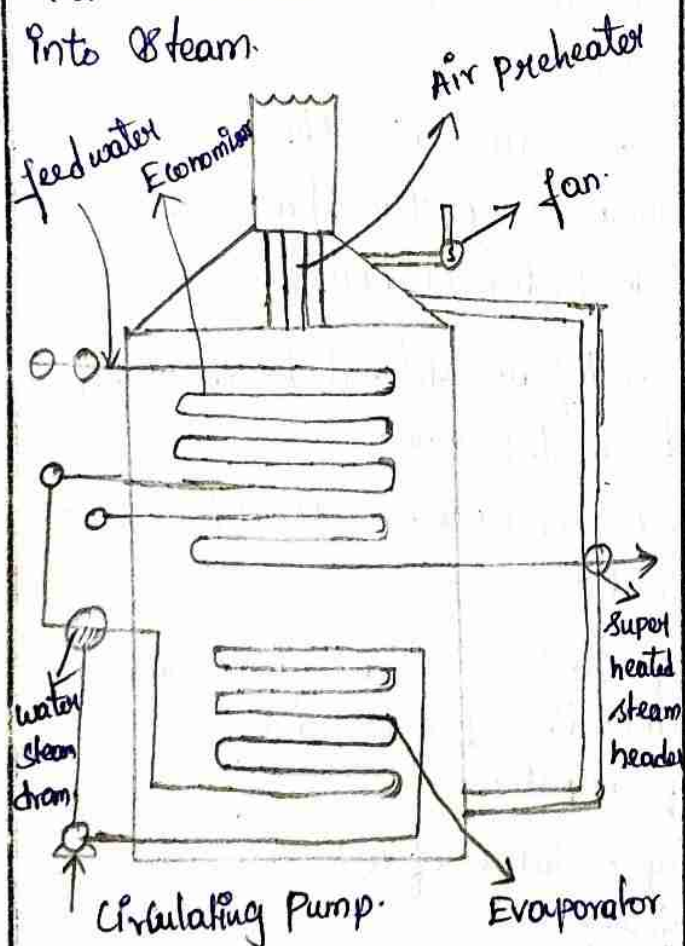 into Steam.
Air preheater
feedwater
Economiser
fan.
Super
heated
steam
header
water
stean
dram
Circulating Pump.
Evaporator